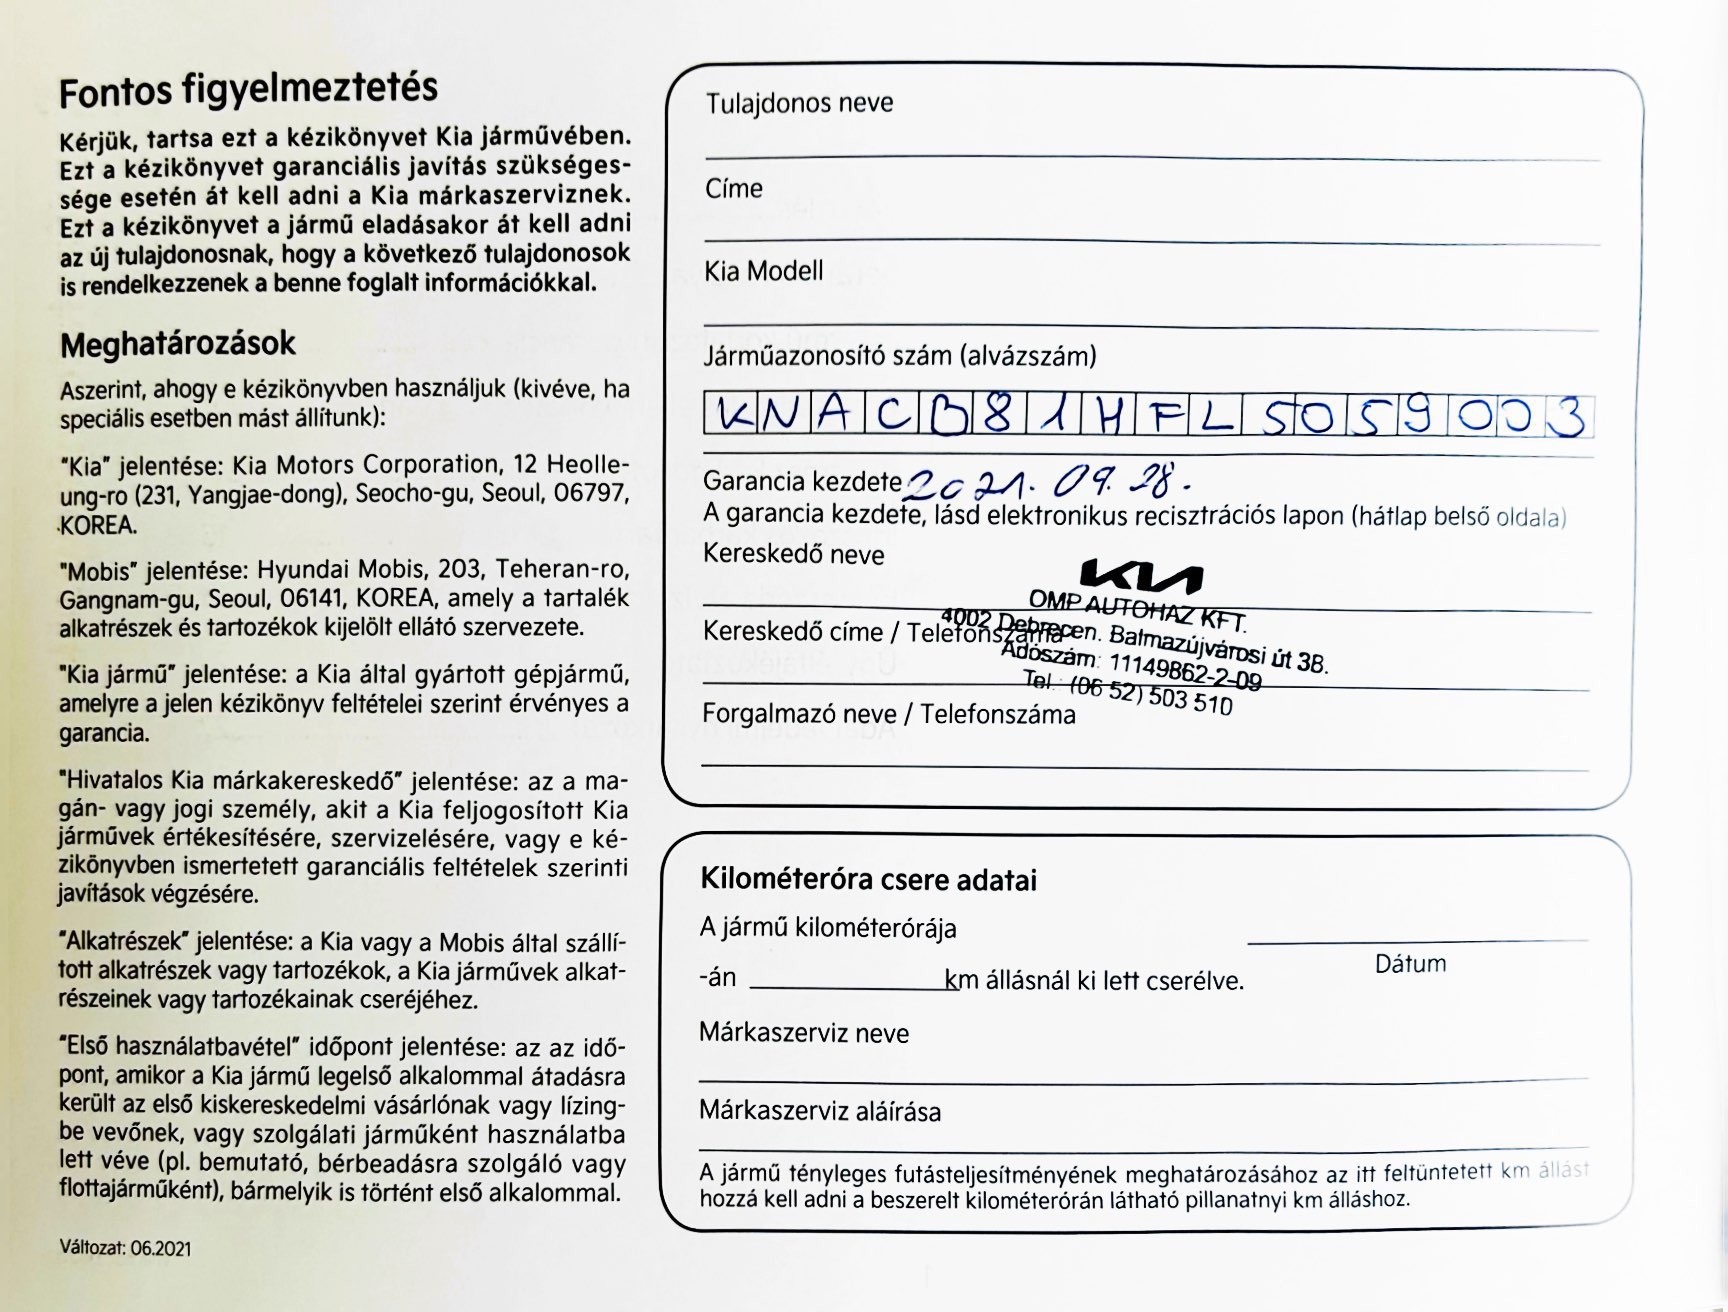 Fontos figyelmeztetés
Kérjük, tartsa ezt a kézikönyvet Kia járművében.
Ezt a kézikönyvet garanciális javítás szükséges-
sége esetén át kell adni a Kia márkaszerviznek.
Ezt a kézikönyvet a jármű eladásakor át kell adni
az új tulajdonosnak, hogy a következő tulajdonosok
is rendelkezzenek a benne foglalt információkkal.
Meghatározások
Aszerint, ahogy e kézikönyvben használjuk (kivéve, ha
speciális esetben mást állítunk):
"Kia" jelentése: Kia Motors Corporation, 12 Heolle-
ung-ro (231, Yangjae-dong), Seocho-gu, Seoul, 06797,
KOREA.
"Mobis" jelentése: Hyundai Mobis, 203, Teheran-ro,
Gangnam-gu, Seoul, 06141, KOREA, amely a tartalék
alkatrészek és tartozékok kijelölt ellátó szervezete.
"Kia jármű" jelentése: a Kia által gyártott gépjármű,
amelyre a jelen kézikönyv feltételei szerint érvényes a
garancia.
"Hivatalos Kia márkakereskedő" jelentése: az a ma-
gán- vagy jogi személy, akit a Kia feljogosított Kia
járművek értékesítésére, szervizelésére, vagy e ké-
zikönyvben ismertetett garanciális feltételek szerinti
javítások végzésére.
"Alkatrészek" jelentése: a Kia vagy a Mobis által szállí-
tott alkatrészek vagy tartozékok, a Kia járművek alkat-
részeinek vagy tartozékainak cseréjéhez.
"Első használatbavétel" időpont jelentése: az az idő-
pont, amikor a Kia jármű legelső alkalommal átadásra
került az első kiskereskedelmi vásárlónak vagy lízing-
be vevőnek, vagy szolgálati járműként használatba
lett véve (pl. bemutató, bérbeadásra szolgáló vagy
flottajárműként), bármelyik is történt első alkalommal.
Változat: 06.2021
Tulajdonos neve
Címe
Kia Modell
Járműazonosító szám (alvázszám)
KNACB81HFL5059003
Garancia kezdete 2021. 09. 28.
A garancia kezdete, lásd elektronikus recisztrációs lapon (hátlap belső oldala)
Kereskedő neve
KIA
OMP AUTOHAZ KFT.
4002 Debrecen. Balmazújvárosi út 3B.
Kereskedő címe / Telefonszáma
Adószám: 11149862-2-09
Tel.: (06 52) 503 510
Forgalmazó neve / Telefonszáma
Kilométeróra csere adatai
A jármű kilométerórája
Dátum
-án km állásnál ki lett cserélve.
Márkaszerviz neve
Márkaszerviz aláírása
A jármű tényleges futásteljesítményének meghatározásához az itt feltüntetett km állást
hozzá kell adni a beszerelt kilométerórán látható pillanatnyi km álláshoz.